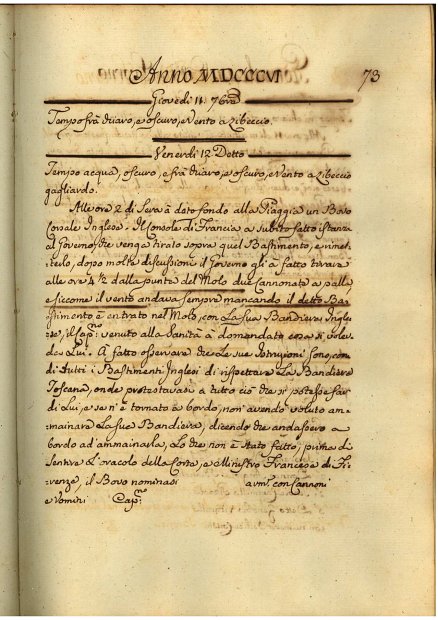 Anno MDCCCVI 73
Giovedi 11. 7bre
Tempo frà chiaro, e oscuro, e Vento a Libeccio.
Venerdi 12 Detto
Tempo acqua, oscuro, e frà chiaro, e oscuro, e Vento a Libeccio
gagliardo.
Alle ore 2 di Sera à dato fondo alla Piaggia un Bovo
Corsale Inglese. Il Console di Francia a subito fatto istanza
al Governo che venga tirato sopra quel Bastimento, e
e dopo molte discussioni il Governo gli à fatto tirare
alle ore 4 1/2 dalla punta del Molo due Cannonate a palla
e siccome il vento andava sempre mancando il detto Ba=
stimento è entrato nel Molo, con La sua Bandiera Ingle=
se, il Cap:no venuto alla Sanità à domandato cosa si vole
da Lui. A fatto osservare che Le sue Istruzioni sono, com
di tutti i Bastimenti Inglesi di rispettare La Bandiera
Toscana, onde protestavasi a tutto ciò che si potesse far
di Lui, e se n'è tornato à bordo, non avendo voluto am=
mainara La sua Bandiera, dicendo che andassero a
bordo ad ammainarla, Lo che non è stato fatto, prima di
sentire L'oracolo della Corte, e Ministro Francese di Fi=
renze, il Bovo nominasi con Cannoni
e Uomini Cap:no